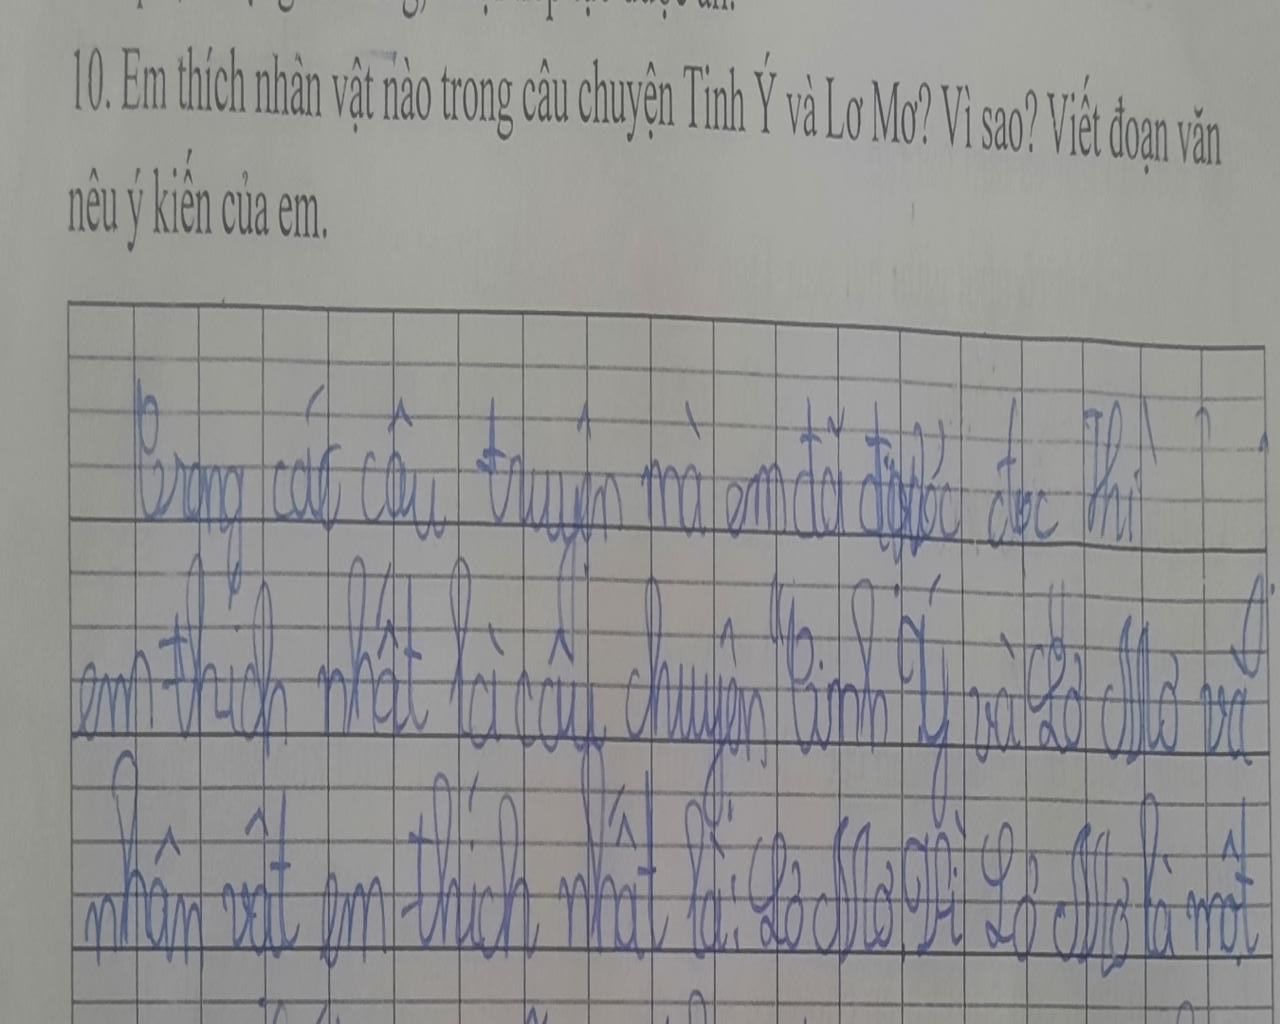 10. Em thích nhân vật nào trong câu chuyện Tinh Ý và Lơ Mơ? Vì sao? Viết đoạn văn
nêu ý kiến của em.
Trong các câu truyện mà em đã được đọc thì
em thích nhất là câu chuyện "Tinh Ý và Lơ Mơ và
nhân vật em thích nhất là: Lơ Mơ, Vì Lơ Mơ là một